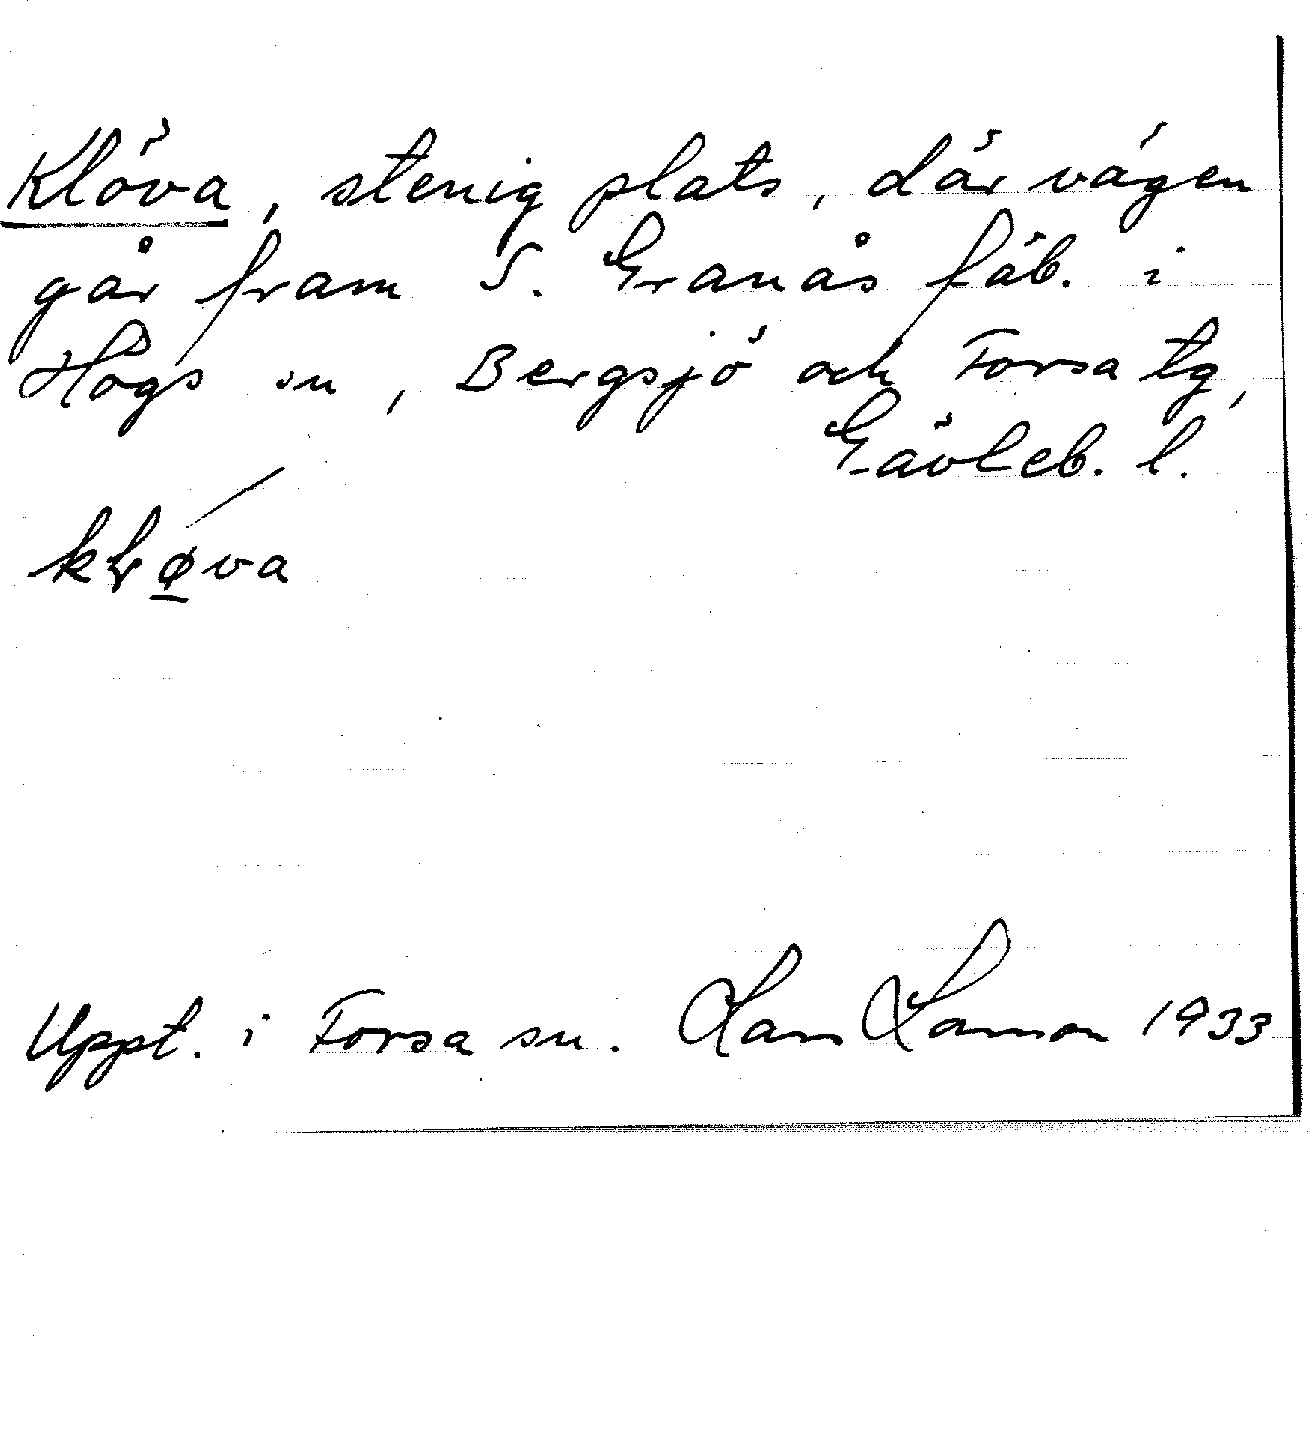 Klöva, stenig plats, där vägen
går fram S. Granås fäb. i
Högs sn, Bergsjö och Forsa tg,
Gävleb. l.
klø̱va
Uppt. i Forsa sn. Lars Larson 1933